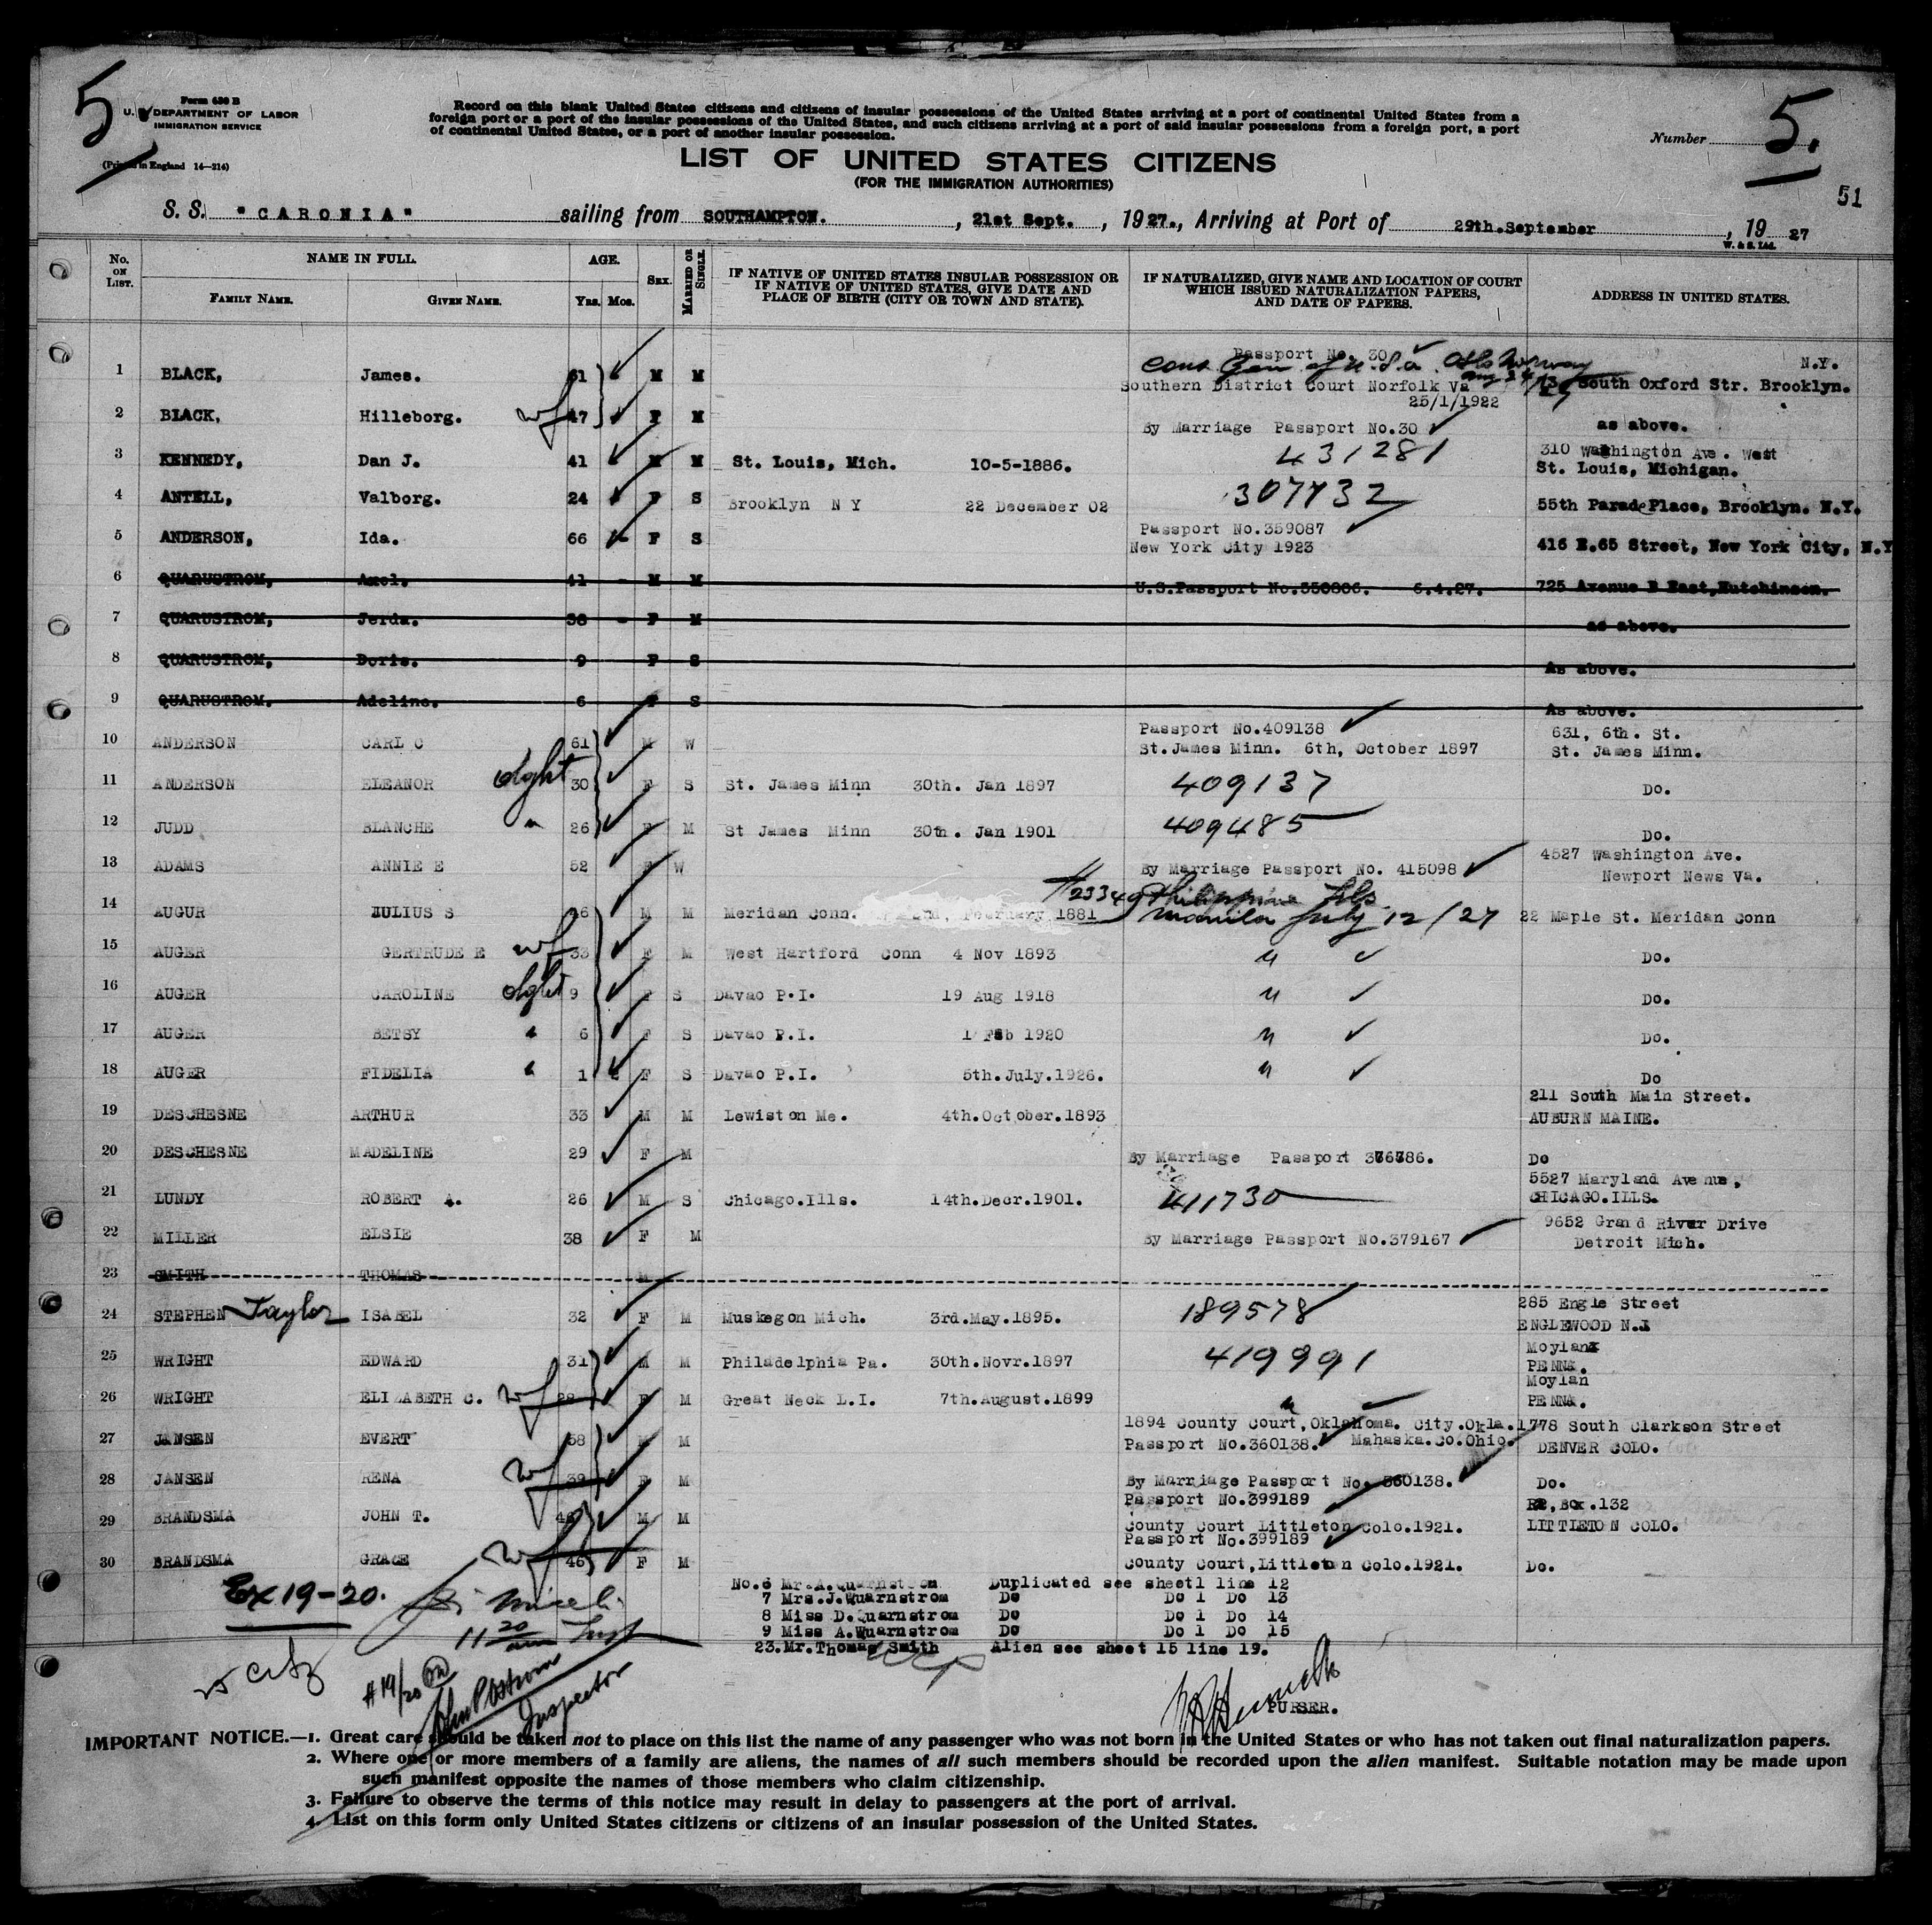 5
Form 630 B
U. S. DEPARTMENT OF LABOR
IMMIGRATION SERVICE
(Printed in England 14—214)
Record on this blank United States citizens and citizens of insular possessions of the United States arriving at a port of continental United States from a
foreign port or a port of the insular possessions of the United States, and such citizens arriving at a port of said insular possessions from a foreign port, a port
of continental United States, or a port of another insular possession.
Number 5.
LIST OF UNITED STATES CITIZENS
(FOR THE IMMIGRATION AUTHORITIES)
51
S. S. "CARONIA" sailing from SOUTHAMPTON. , 21st Sept. , 1927., Arriving at Port of 29th.September , 19 27
W. & S. Ltd.
No. ON LIST. NAME IN FULL. FAMILY NAME. GIVEN NAME. AGE. Yrs. Mos. SEX. MARRIED OR SINGLE.
IF NATIVE OF UNITED STATES INSULAR POSSESSION OR IF NATIVE OF UNITED STATES, GIVE DATE AND PLACE OF BIRTH (CITY OR TOWN AND STATE).
IF NATURALIZED, GIVE NAME AND LOCATION OF COURT WHICH ISSUED NATURALIZATION PAPERS, AND DATE OF PAPERS.
ADDRESS IN UNITED STATES.
Passport No. 30 N.Y.
1 BLACK, James. 61 M M Southern District Court Norfolk Va South Oxford Str. Brooklyn.
25/1/1922
2 BLACK, Hilleborg. wf 47 F M By Marriage Passport No.30 as above.
3 KENNEDY, Dan J. 41 M M St. Louis, Mich. 10-5-1886. 431281 310 Washington Ave. West
St. Louis, Michigan.
4 ANTELL, Valborg. 24 F S Brooklyn N Y 22 December 02 307732 55th Parade Place, Brooklyn. N.Y.
Passport No.359087
5 ANDERSON, Ida. 66 F S New York City 1923 416 E.65 Street, New York City, N.Y
6 QUARUSTROM, Axel. 41 - M M U.S.Passport No.350806. 6.4.27. 725 Avenue E East,Hutchinson.
7 QUARUSTROM, Jerda. 38 - F M as above.
8 QUARUSTROM, Doris. 9 F S As above.
9 QUARUSTROM. Adeline. 6 F S As above.
Passport No.409138 631, 6th. St.
10 ANDERSON CARL C 61 M W St.James Minn. 6th, October 1897 St. James Minn.
11 ANDERSON ELEANOR dght 30 F S St. James Minn 30th. Jan 1897 409137 Do.
12 JUDD BLANCHE " 26 F M St James Minn 30th. Jan 1901 409485 Do.
13 ADAMS ANNIE E 52 F W By Marriage Passport No. 415098 4527 Washington Ave.
Newport News Va.
#23349 Philippine Ils
14 AUGUR JULIUS S 46 M M Meridan Conn. February 1881 Manila July 12/27 22 Maple St. Meridan Conn
15 AUGER GERTRUDE E wf 33 F M West Hartford Conn 4 Nov 1893 " Do.
16 AUGER CAROLINE dght 9 F S Davao P.I. 19 Aug 1918 " Do.
17 AUGER BETSY " 6 F S Davao P.I. 1 Feb 1920 " Do.
18 AUGER FIDELIA " 1 F S Davao P.I. 5th.July.1926. " Do
211 South Main Street.
19 DESCHESNE ARTHUR 33 M M Lewiston Me. 4th.October.1893 AUBURN MAINE.
20 DESCHESNE MADELINE 29 F M By Marriage Passport 376786. Do
5527 Maryland Avenue,
21 LUNDY ROBERT A. 26 M S Chicago.Ills. 14th.Decr.1901. 411730 CHICAGO.ILLS.
22 MILLER ELSIE 38 F M By Marriage Passport No.379167 9652 Grand River Drive
Detroit Mich.
23 SMITH THOMAS M
24 STEPHEN Taylor ISABEL 32 F M Muskegon Mich. 3rd.May.1895. 189578 285 Engle Street
ENGLEWOOD N.J
25 WRIGHT EDWARD 31 M M Philadelphia Pa. 30th.Novr.1897 419991 Moylan
PENNA.
26 WRIGHT ELIZABETH C. wf 28 F M Great Neck L.I. 7th.August.1899 " Moylan
PENNA.
1894 County Court,Oklahoma. City.Okla. 1778 South Clarkson Street
27 JANSEN EVERT 58 M M Passport No.360138. Mahaska.Co.Ohio. DENVER COLO.
28 JANSEN RENA wf 39 F M By Marriage Passport No. 360138. Do.
Passport No.399189 R2, Box.132
29 BRANDSMA JOHN T. M M County Court Littleton Colo.1921. LITTLETON COLO.
Passport No.399189
30 BRANDSMA GRACE wf 46 F M County Court,Littleton Colo.1921. Do.
No.6 Mr.A.Quarnstrom Duplicated see sheet1 line 12
7 Mrs.J.Quarnstrom Do Do 1 Do 13
8 Miss D.Quarnstrom Do Do 1 Do 14
9 Miss A.Quarnstrom Do Do 1 Do 15
23.Mr.Thomas Smith Alien see sheet 15 line 19.
Ex 19-20.
11 20 am Insp
#19/20
Inspector
PURSER.
IMPORTANT NOTICE.—1. Great care should be taken not to place on this list the name of any passenger who was not born in the United States or who has not taken out final naturalization papers.
2. Where one or more members of a family are aliens, the names of all such members should be recorded upon the alien manifest. Suitable notation may be made upon
such manifest opposite the names of those members who claim citizenship.
3. Failure to observe the terms of this notice may result in delay to passengers at the port of arrival.
4. List on this form only United States citizens or citizens of an insular possession of the United States.